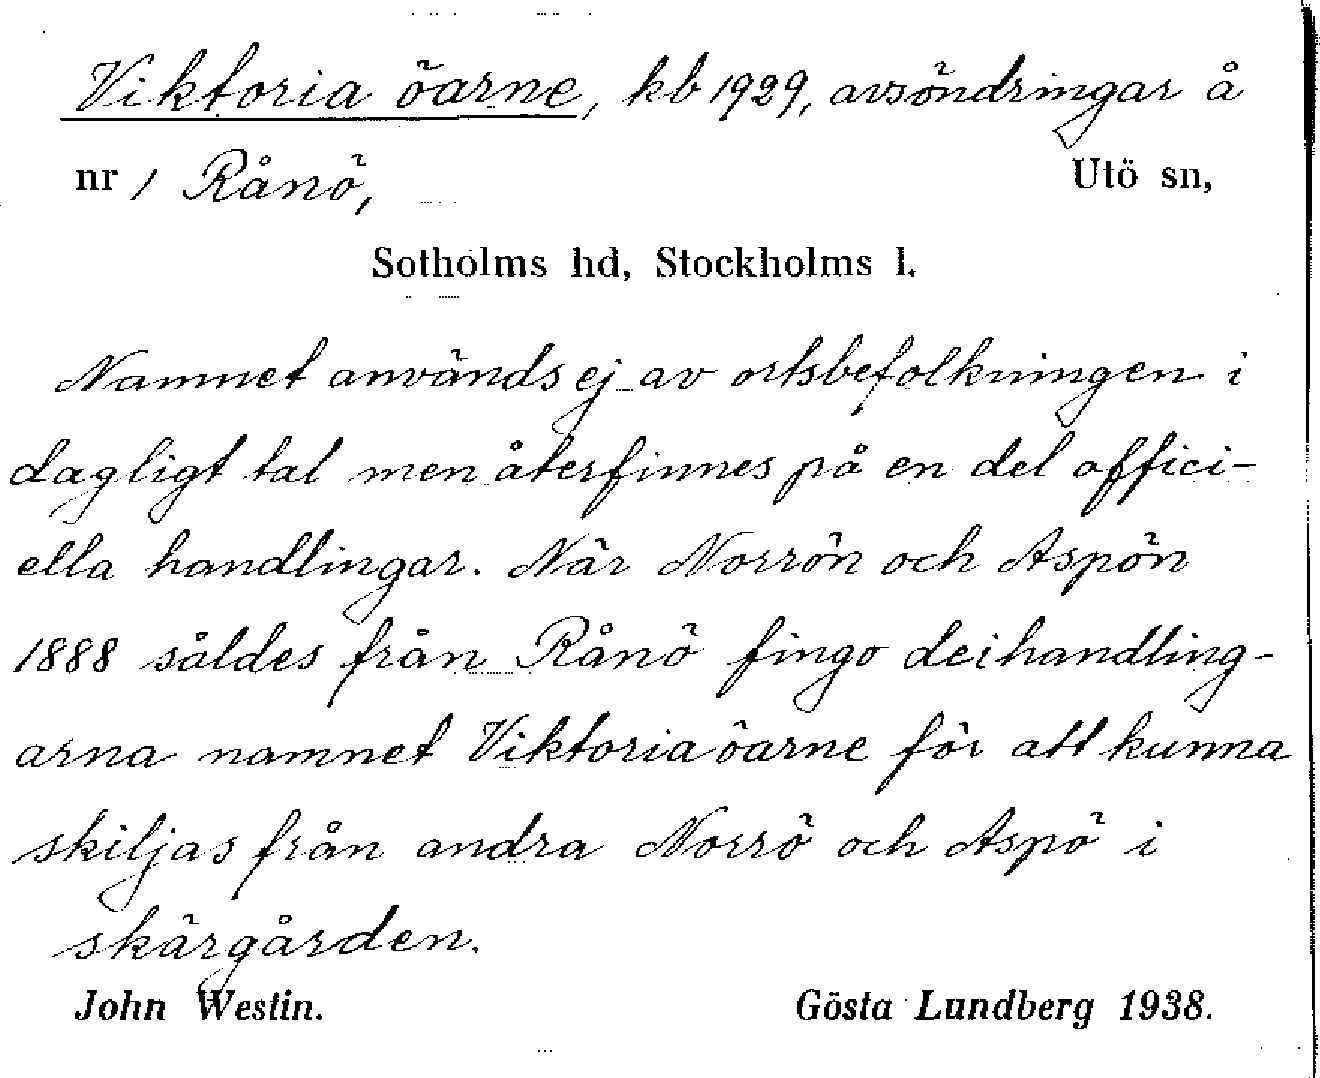 Viktoria öarne, kb 1929, avsöndringar å
nr 1 Rånö, Utö sn,
Sotholms hd, Stockholms l.
Namnet används ej av ortsbefolkningen i
dagligt tal men återfinnes på en del offici-
ella handlingar. När Norrön och Aspön
1888 såldes från Rånö fingo de i handling-
arna namnet Viktoria öarne för att kunna
skiljas från andra Norrö och Aspö i
skärgården.
John Westin. Gösta Lundberg 1938.